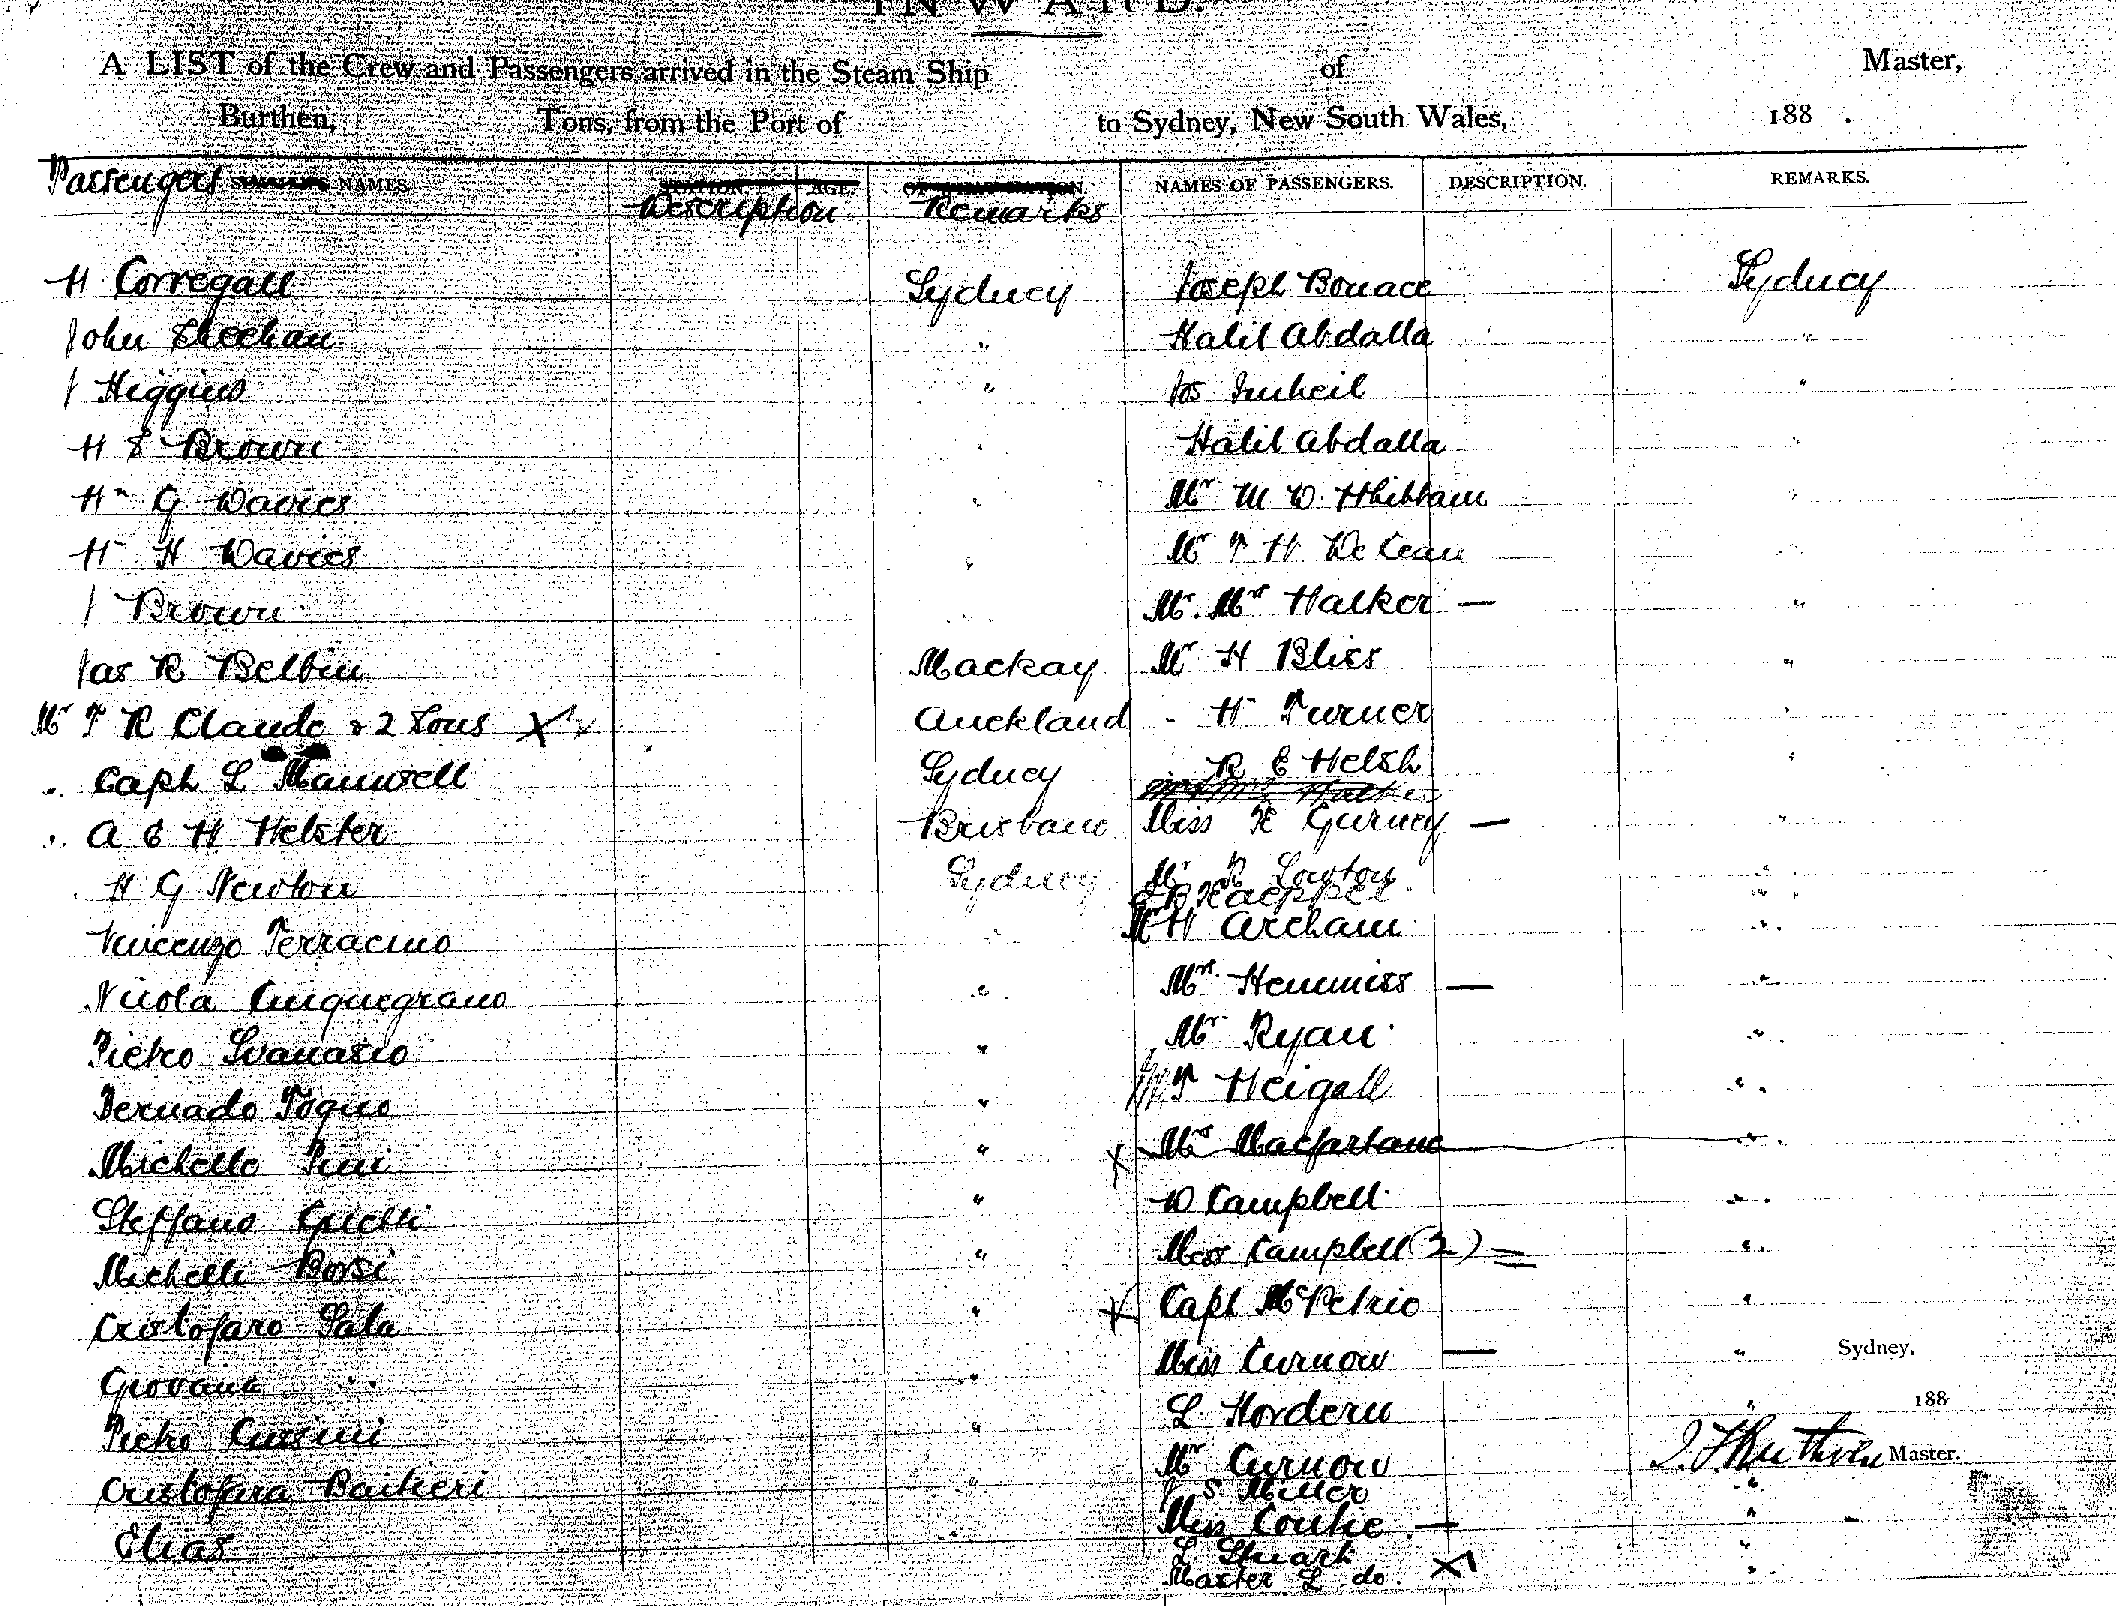 INWARD.
A LIST of the Crew and Passengers arrived in the Steam Ship of Master,
Burthen, Tons, from the Port of to Sydney, New South Wales, 188 .
Passengers NAMES. Description Remarks NAMES OF PASSENGERS. DESCRIPTION. REMARKS.
H Corregall Sydney Joseph Bonace Sydney
John Sheehan " Halil Abdalla "
J Higgins " Jos "
H S Brown " Halil Abdalla "
Wm G Davies " Mr M W. Whitham "
Wm H Davies " Mr F W "
J Brown " Mr. Mrs Walker — "
Jas R Belbin Mackay Mr H Bliss "
Mr F R Claude & 2 Sons X Auckland " W Turner "
" Capt L Manwell Sydney R E Welsh "
" A E H Webster Brisbane Miss K Gurney — "
H G Newton Sydney Mr R Lawton "
E R Kaeppel "
Vincenzo Terracino " Mr W Archam "
Nicola Cinquegrano " Mrs. Hemmiss — "
Pietro " Mr Ryan "
Bernado Togno " Mr F Weigall "
Michelle Pini " X Mrs Macfarlane "
Steffano " W Campbell "
Michelle Borsi " Miss Campbell (2) = "
Cristofaro Sala " X Capt McPetrie "
Giovana " " Miss Curnow — " Sydney,
Pietro Cussini " L Hordern " 188
Cristofara " Mr Curnow Master.
J S Miller "
Elias " Miss Coutie — "
L Stuart "
Master L do. X "